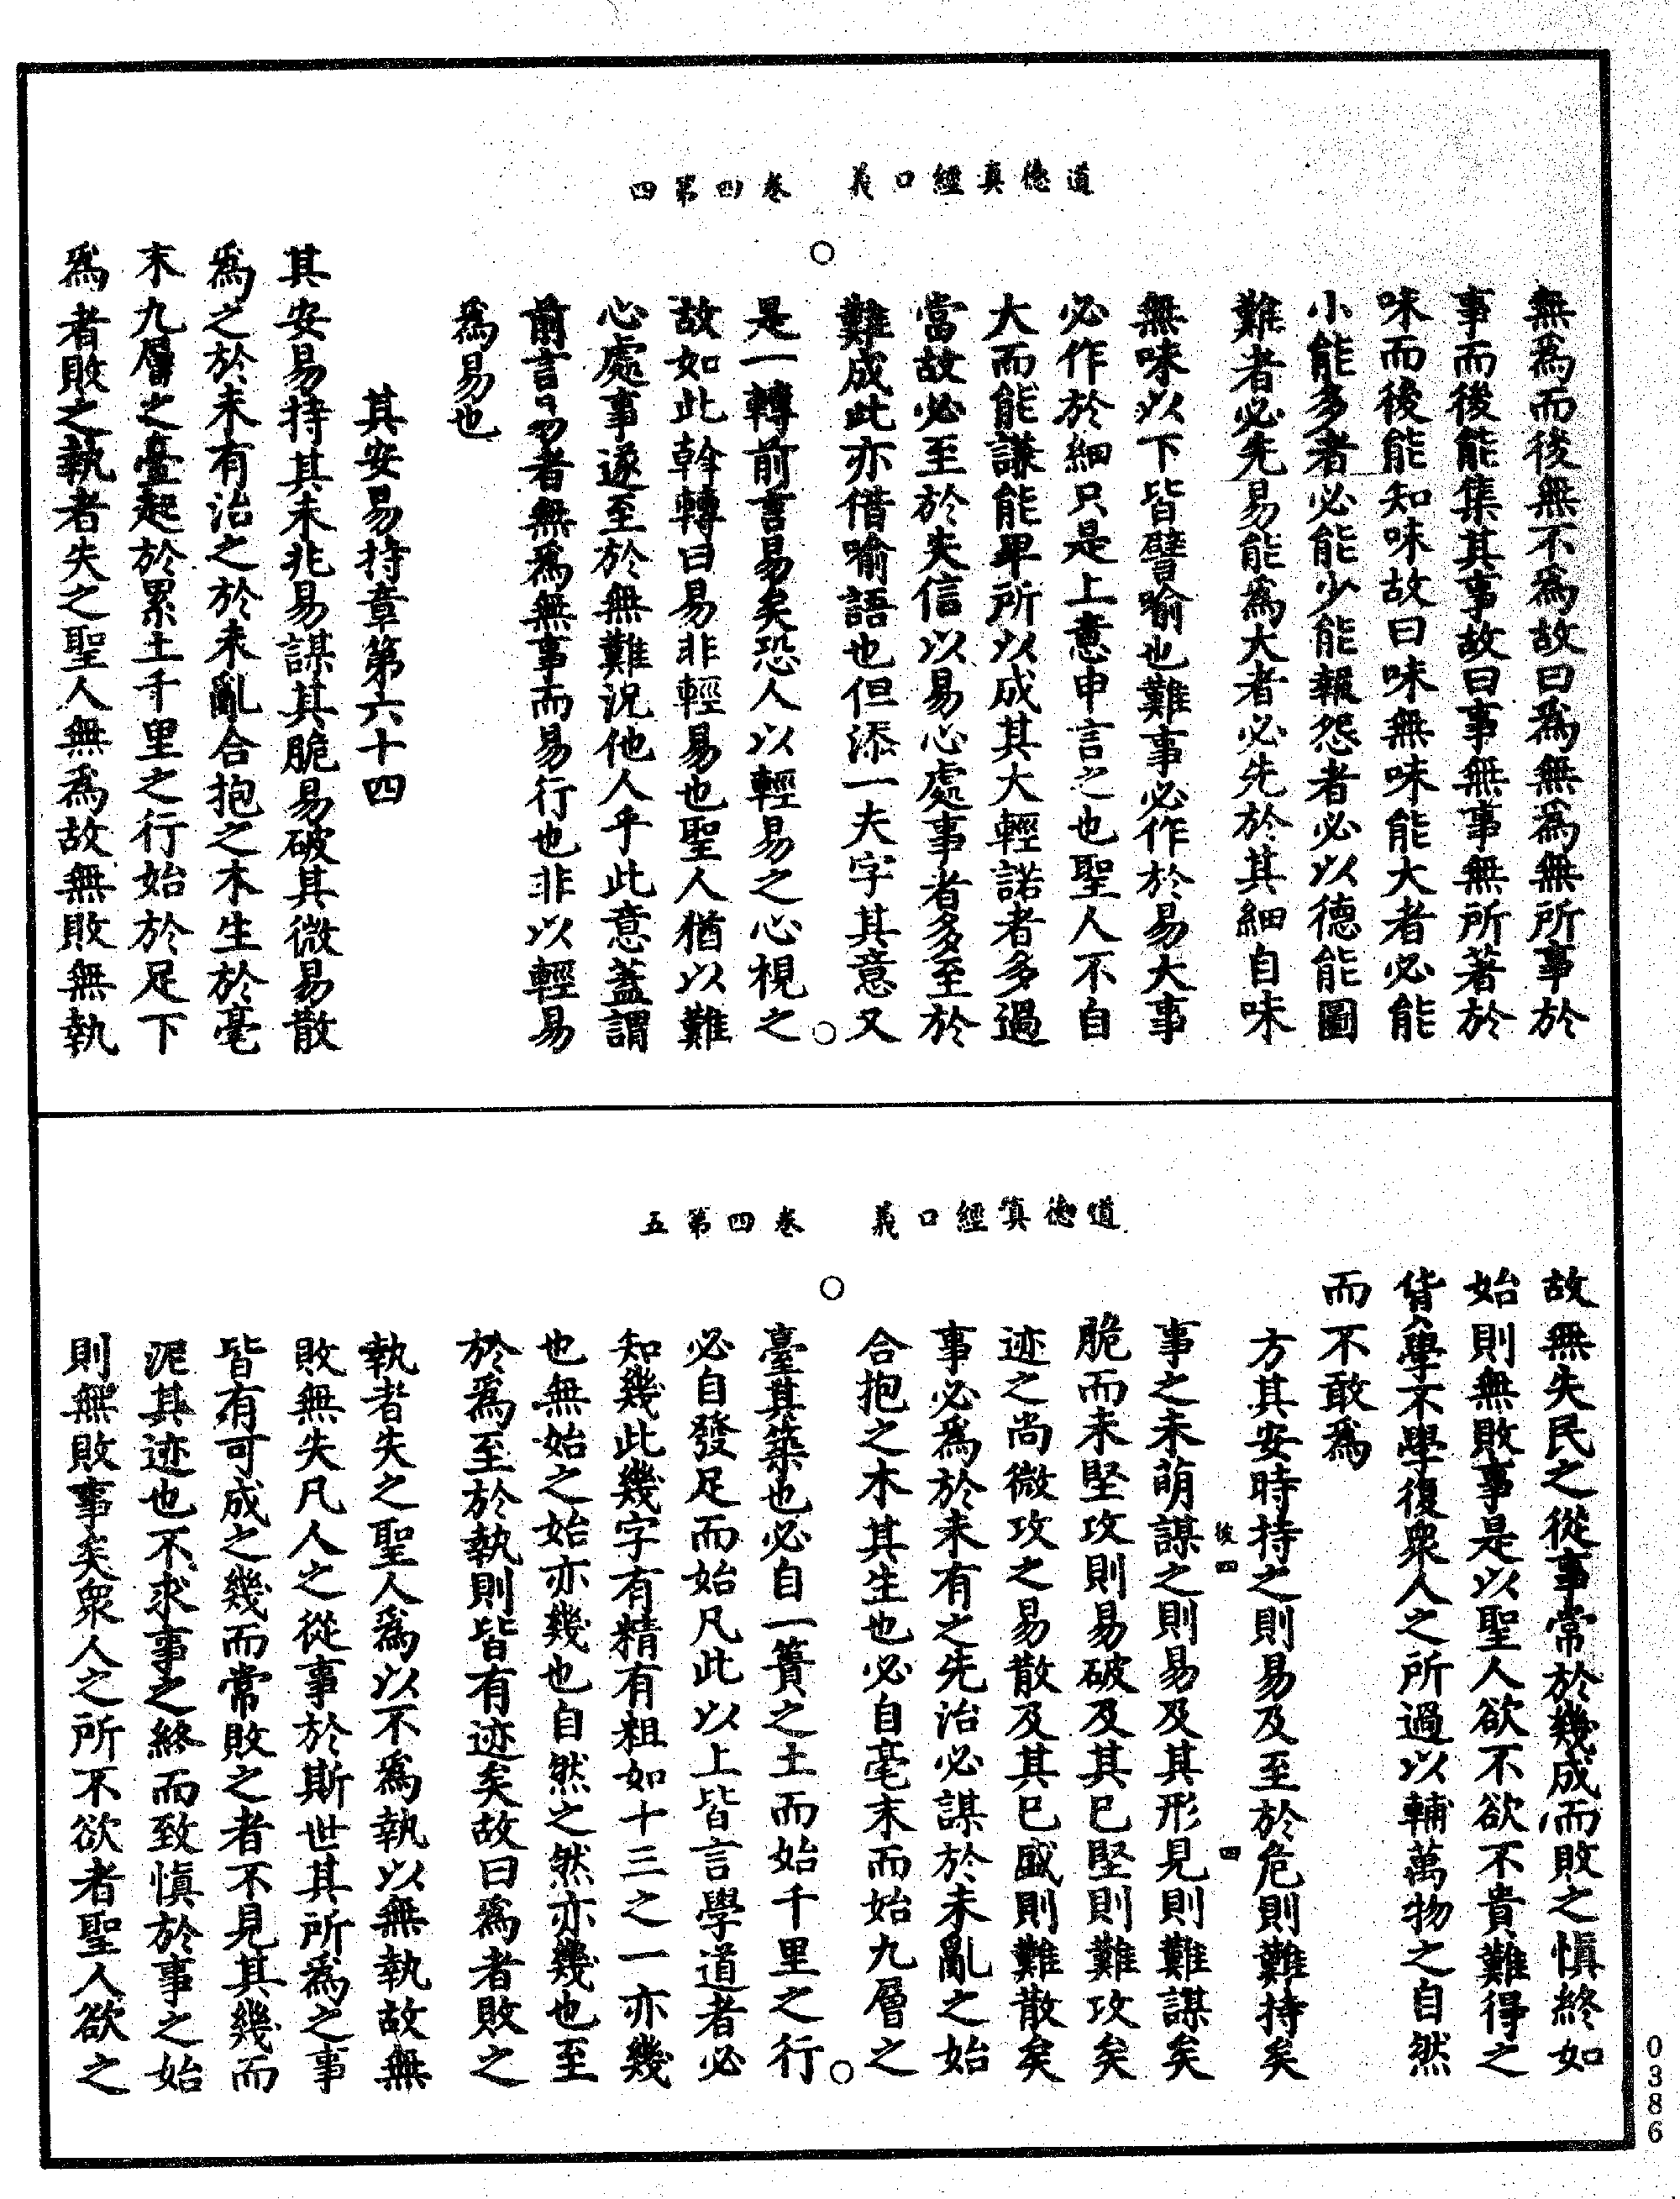 道德真經口義　卷四第四
無為而後無不為故曰為無為無所事於
事而後能集其事故曰事無事無所著於
味而後能知味故曰味無味能大者必能
小能多者必能少能報怨者必以德能圖
難者必先易能為大者必先於其細自味
無味以下皆譬喻也難事必作於易大事
必作於細只是上意申言之也聖人不自
大而能謙能卑所以成其大輕諾者多過
當故必至於失信以易心處事者多至於
難成此亦借喻語也但添一夫字其意又
是一轉前言易矣恐人以輕易之心視之
故如此斡轉曰易非輕易也聖人猶以難
心處事遂至於無難況他人乎此意蓋謂
前言易者無為無事而易行也非以輕易
為易也
其安易持章第六十四
其安易持其未兆易謀其脆易破其微易散
為之於未有治之於未亂合抱之木生於毫
末九層之臺起於累土千里之行始於足下
為者敗之執者失之聖人無為故無敗無執
道德真經口義　卷四第五
故無失民之從事常於幾成而敗之慎終如
始則無敗事是以聖人欲不欲不貴難得之
貨學不學復眾人之所過以輔萬物之自然
而不敢為
方其安時持之則易及至於危則難持矣
彼四　四
事之未萌謀之則易及其形見則難謀矣
脆而未堅攻則易破及其已堅則難攻矣
迹之尚微攻之易散及其已盛則難散矣
事必為於未有之先治必謀於未亂之始
合抱之木其生也必自毫末而始九層之
臺其築也必自一簣之土而始千里之行
必自發足而始凡此以上皆言學道者必
知幾此幾字有精有粗如十三之一亦幾
也無始之始亦幾也自然之然亦幾也至
於為至於執則皆有迹矣故曰為者敗之
執者失之聖人為以不為執以無執故無
敗無失凡人之從事於斯世其所為之事
皆有可成之幾而常敗之者不見其幾而
泥其迹也不求事之終而致慎於事之始
則無敗事矣眾人之所不欲者聖人欲之
0386